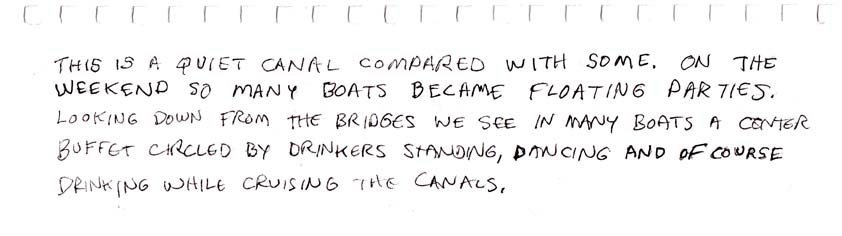 THIS IS A QUIET CANAL COMPARED WITH SOME. ON THE
WEEKEND SO MANY BOATS BECAME FLOATING PARTIES.
LOOKING DOWN FROM THE BRIDGES WE SEE IN MANY BOATS A CENTER
BUFFET CIRCLED BY DRINKERS STANDING, DANCING AND OF COURSE
DRINKING WHILE CRUISING THE CANALS.